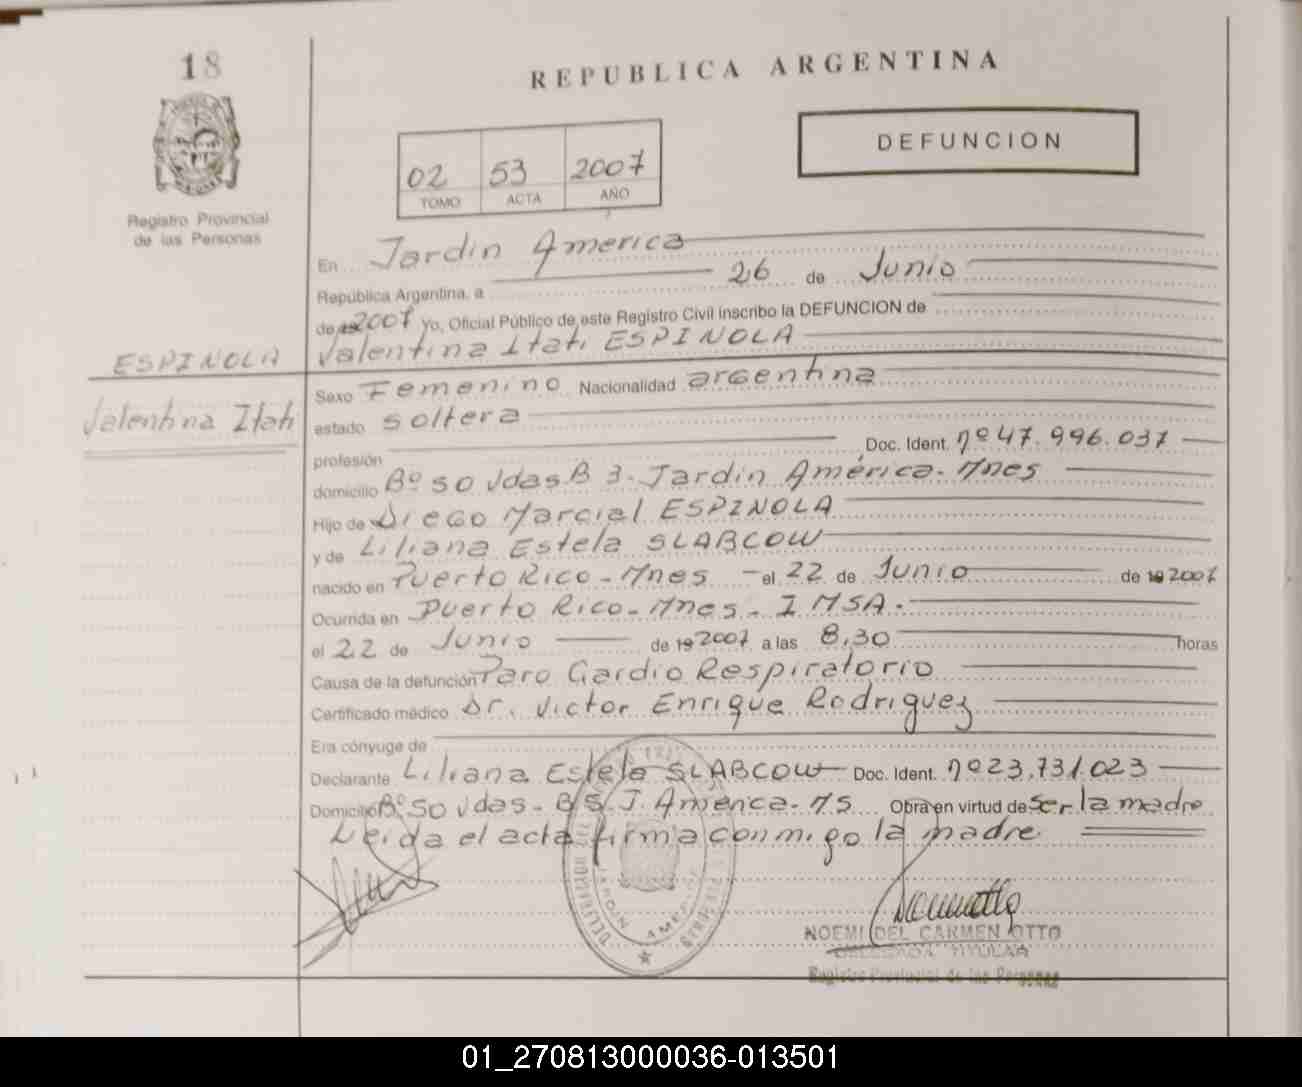 18
REPUBLICA ARGENTINA
DEFUNCION
02 53 2007
TOMO ACTA AÑO
Registro Provincial
de las Personas
En Jardin America
República Argentina, a 26 de Junio
de 2007 Yo, Oficial Público de este Registro Civil inscribo la DEFUNCION de
ESPINOLA Valentina Itati ESPINOLA
Sexo Femenino Nacionalidad argentina
Valentina Itati
estado soltera
profesión Doc. Ident. nº 47.996.037
domicilio Bº 50 Vdas B 3. Jardin América. Mnes
Hijo de Diego Marcial ESPINOLA
y de Liliana Estela SLABCOW
nacido en Puerto Rico - Mnes - el 22 de Junio de 19 2007
Ocurrida en Puerto Rico - Mnes - IMSA.
el 22 de Junio de 19 2007 a las 8,30 horas
Causa de la defunción Paro Cardio Respiratorio
Certificado médico Dr. Victor Enrique Rodriguez
Era cónyuge de
Declarante Liliana Estela SLABCOW Doc. Ident. nº 23.731.023
Domicilio Bº 50 Vdas - B J. America - Obra en virtud de Ser la madre
Leida el acta firma conmigo la madre
JARDIN AMERICA
NOEMI DEL CARMEN OTTO
DELEGADA TITULAR
Registro Provincial de las Personas
01_270813000036-013501